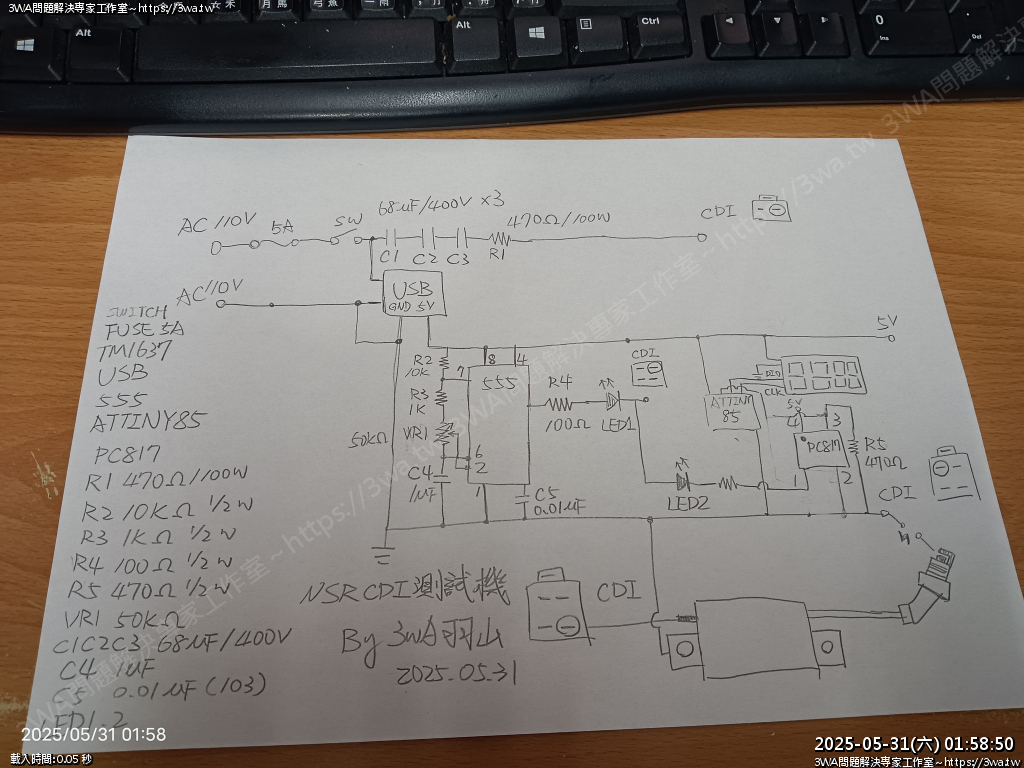 3WA問題解決專家工作室~https://3wa.tw
Alt
Alt
Ctrl
0
Ins
Del
AC 110V
5A
SW
68uF/400V x3
470Ω/100W
CDI
C1
C2
C3
R1
AC110V
USB
GND 5V
5V
SWITCH
FUSE 5A
TM1637
USB
555
ATTINY85
PC817
R1 470Ω/100W
R2 10KΩ 1/2 W
R3 1KΩ 1/2 W
R4 100Ω 1/2 W
R5 470Ω 1/2 W
VR1 50KΩ
C1C2C3 68uF/400V
C4 1uF
C5 0.01uF (103)
LED1.2
R2
10K
7
8
4
555
R3
1K
50KΩ
VR1
6
2
C4
1uF
1
C5
0.01uF
R4
100Ω
LED1
CDI
LED2
ATTINY
85
DIO
CLK
5V
4
3
PC817
1
2
R5
470Ω
CDI
NSR CDI 測試機
CDI
By 3WA羽山
2025.05.31
3WA問題解決專家工作室~https://3wa.tw
2025/05/31 01:58
載入時間:0.05 秒
2025-05-31(六) 01:58:50
3WA問題解決專家工作室~https://3wa.tw